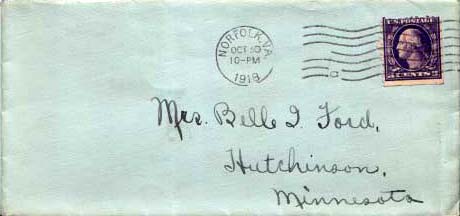 NORFOLK, VA.
OCT 30
10-PM
1918
U.S. POSTAGE
3 CENTS 3
Mrs. Belle I. Ford,
Hutchinson,
Minnesota